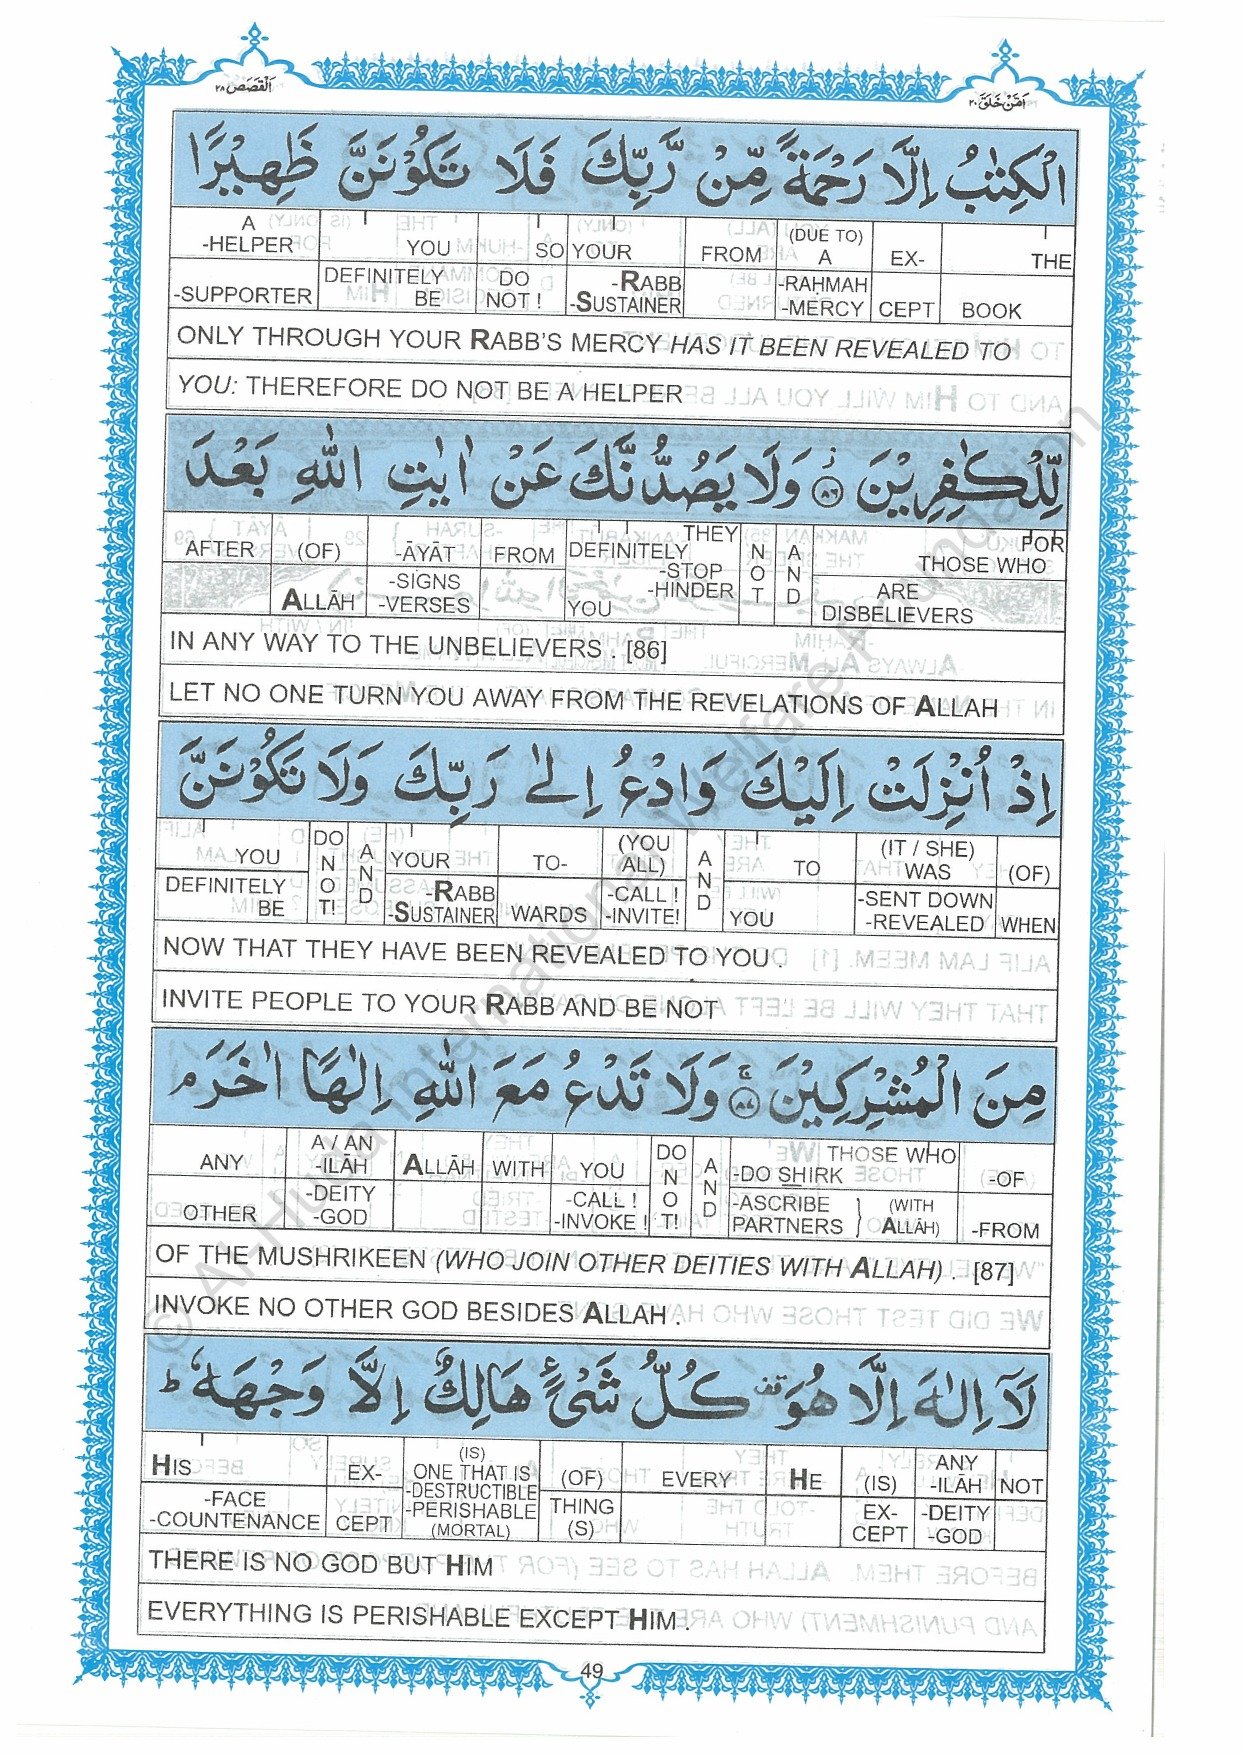 اَلْقَصَص ٢٨
اَمَّنْ خَلَقَ ٢٠
الْكِتٰبُ اِلَّا رَحْمَةً مِّنْ رَّبِّكَ فَلَا تَكُوْنَنَّ ظَهِيْرًا
A -HELPER -SUPPORTER | YOU DEFINITELY BE | DO NOT ! | SO YOUR -RABB -SUSTAINER | FROM | (DUE TO) A -RAḤMAH -MERCY | EX- CEPT | THE BOOK
ONLY THROUGH YOUR RABB'S MERCY HAS IT BEEN REVEALED TO
YOU: THEREFORE DO NOT BE A HELPER
لِّلْكٰفِرِيْنَ ۝٨٦ وَلَا يَصُدُّنَّكَ عَنْ اٰيٰتِ اللّٰهِ بَعْدَ
AFTER | (OF) ALLĀH | -ĀYĀT -SIGNS -VERSES | FROM | THEY DEFINITELY -STOP -HINDER YOU | NOT | AND | FOR THOSE WHO ARE DISBELIEVERS
IN ANY WAY TO THE UNBELIEVERS . [86]
LET NO ONE TURN YOU AWAY FROM THE REVELATIONS OF ALLAH
اِذْ اُنْزِلَتْ اِلَيْكَ وَادْعُ اِلٰى رَبِّكَ وَلَا تَكُوْنَنَّ
YOU DEFINITELY BE | DO NOT! | AND | YOUR -RABB -SUSTAINER | TO- WARDS | (YOU ALL) -CALL ! -INVITE! | AND | TO YOU | (IT / SHE) WAS -SENT DOWN -REVEALED | (OF) WHEN
NOW THAT THEY HAVE BEEN REVEALED TO YOU .
INVITE PEOPLE TO YOUR RABB AND BE NOT
مِنَ الْمُشْرِكِيْنَ ۝٨٧ وَلَا تَدْعُ مَعَ اللّٰهِ اِلٰهًا اٰخَرَ م
ANY OTHER | A / AN -ILĀH -DEITY -GOD | ALLĀH | WITH | YOU -CALL ! -INVOKE ! | DO NOT! | AND | THOSE WHO -DO SHIRK -ASCRIBE PARTNERS } (WITH ALLĀH) | -OF -FROM
OF THE MUSHRIKEEN (WHO JOIN OTHER DEITIES WITH ALLAH) . [87]
INVOKE NO OTHER GOD BESIDES ALLAH .
لَآ اِلٰهَ اِلَّا هُوَ قف كُلُّ شَيْءٍ هَالِكٌ اِلَّا وَجْهَهٗ ط
HIS -FACE -COUNTENANCE | EX- CEPT | (IS) ONE THAT IS -DESTRUCTIBLE -PERISHABLE (MORTAL) | (OF) THING (S) | EVERY | HE | (IS) EX- CEPT | ANY -ILĀH -DEITY -GOD | NOT
THERE IS NO GOD BUT HIM
EVERYTHING IS PERISHABLE EXCEPT HIM .
49
© Al-Huda International Welfare Foundation